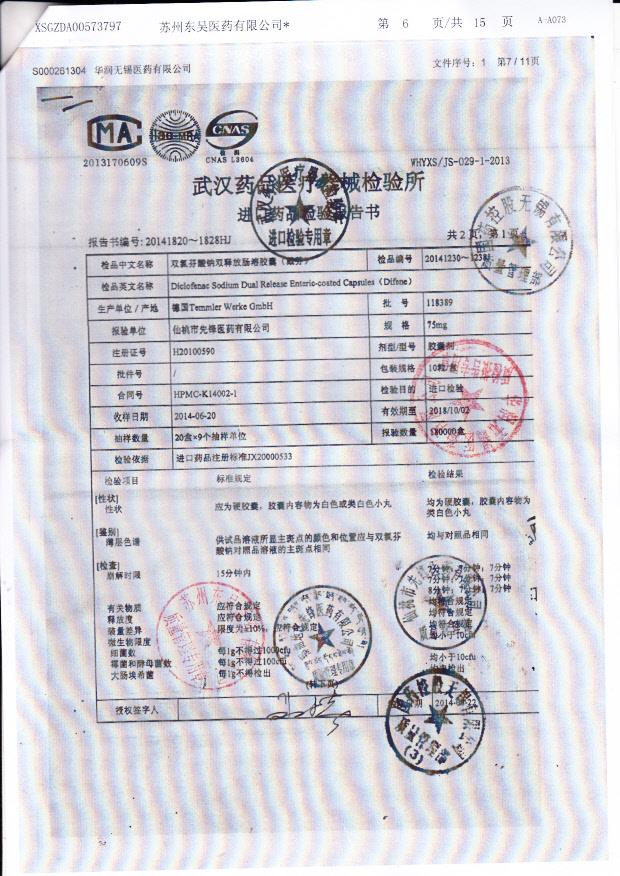 XSGZDA00573797 苏州东昊医药有限公司* 第 6 页/共 15 页 A-A073
S000261304 华润无锡医药有限公司 文件序号：1 第7/11页
MA CNAS
2013170609S CNAS L3604 WHYXS/JS-029-1-2013
武汉药品医疗器械检验所
进口药品检验报告书
进口检验专用章
报告书编号: 20141820～1828HJ 共 2 页 第 1 页
检品中文名称 双氯芬酸钠双释放肠溶胶囊 检品编号 20141230～1238
检品英文名称 Diclofenac Sodium Dual Release Enteric-coated Capsules（Difene）
生产单位 / 产地 德国Temmler Werke GmbH 批 号 118389
报验单位 仙桃市先锋医药有限公司 规 格 75mg
注册证号 H20100590 剂型/型号 胶囊剂
批件号 / 包装规格 10粒/盒
合同号 HPMC-K14002-1 检验目的 进口检验
收样日期 2014-06-20 有效期至 2018/10/02
抽样数量 20盒×9个抽样单位 报验数量 180000盒
检验依据 进口药品注册标准JX20000533
检验项目 标准规定 检验结果
[性状]
性状 应为硬胶囊，胶囊内容物为白色或类白色小丸 均为硬胶囊，胶囊内容物为
类白色小丸
[鉴别]
薄层色谱 供试品溶液所显主斑点的颜色和位置应与双氯芬 均与对照品相同
酸钠对照品溶液的主斑点相同
[检查]
崩解时限 15分钟内 7分钟；8分钟；7分钟
有关物质 应符合规定 均符合规定
释放度 应符合规定 均符合规定
装量差异 限度为±10%，应符合规定 均符合规定
微生物限度
细菌数 每1g不得过1000cfu 均小于10cfu
霉菌和酵母菌数 每1g不得过100cfu 均小于10cfu
大肠埃希菌 每1g不得检出
授权签字人
质量管理部
(3)